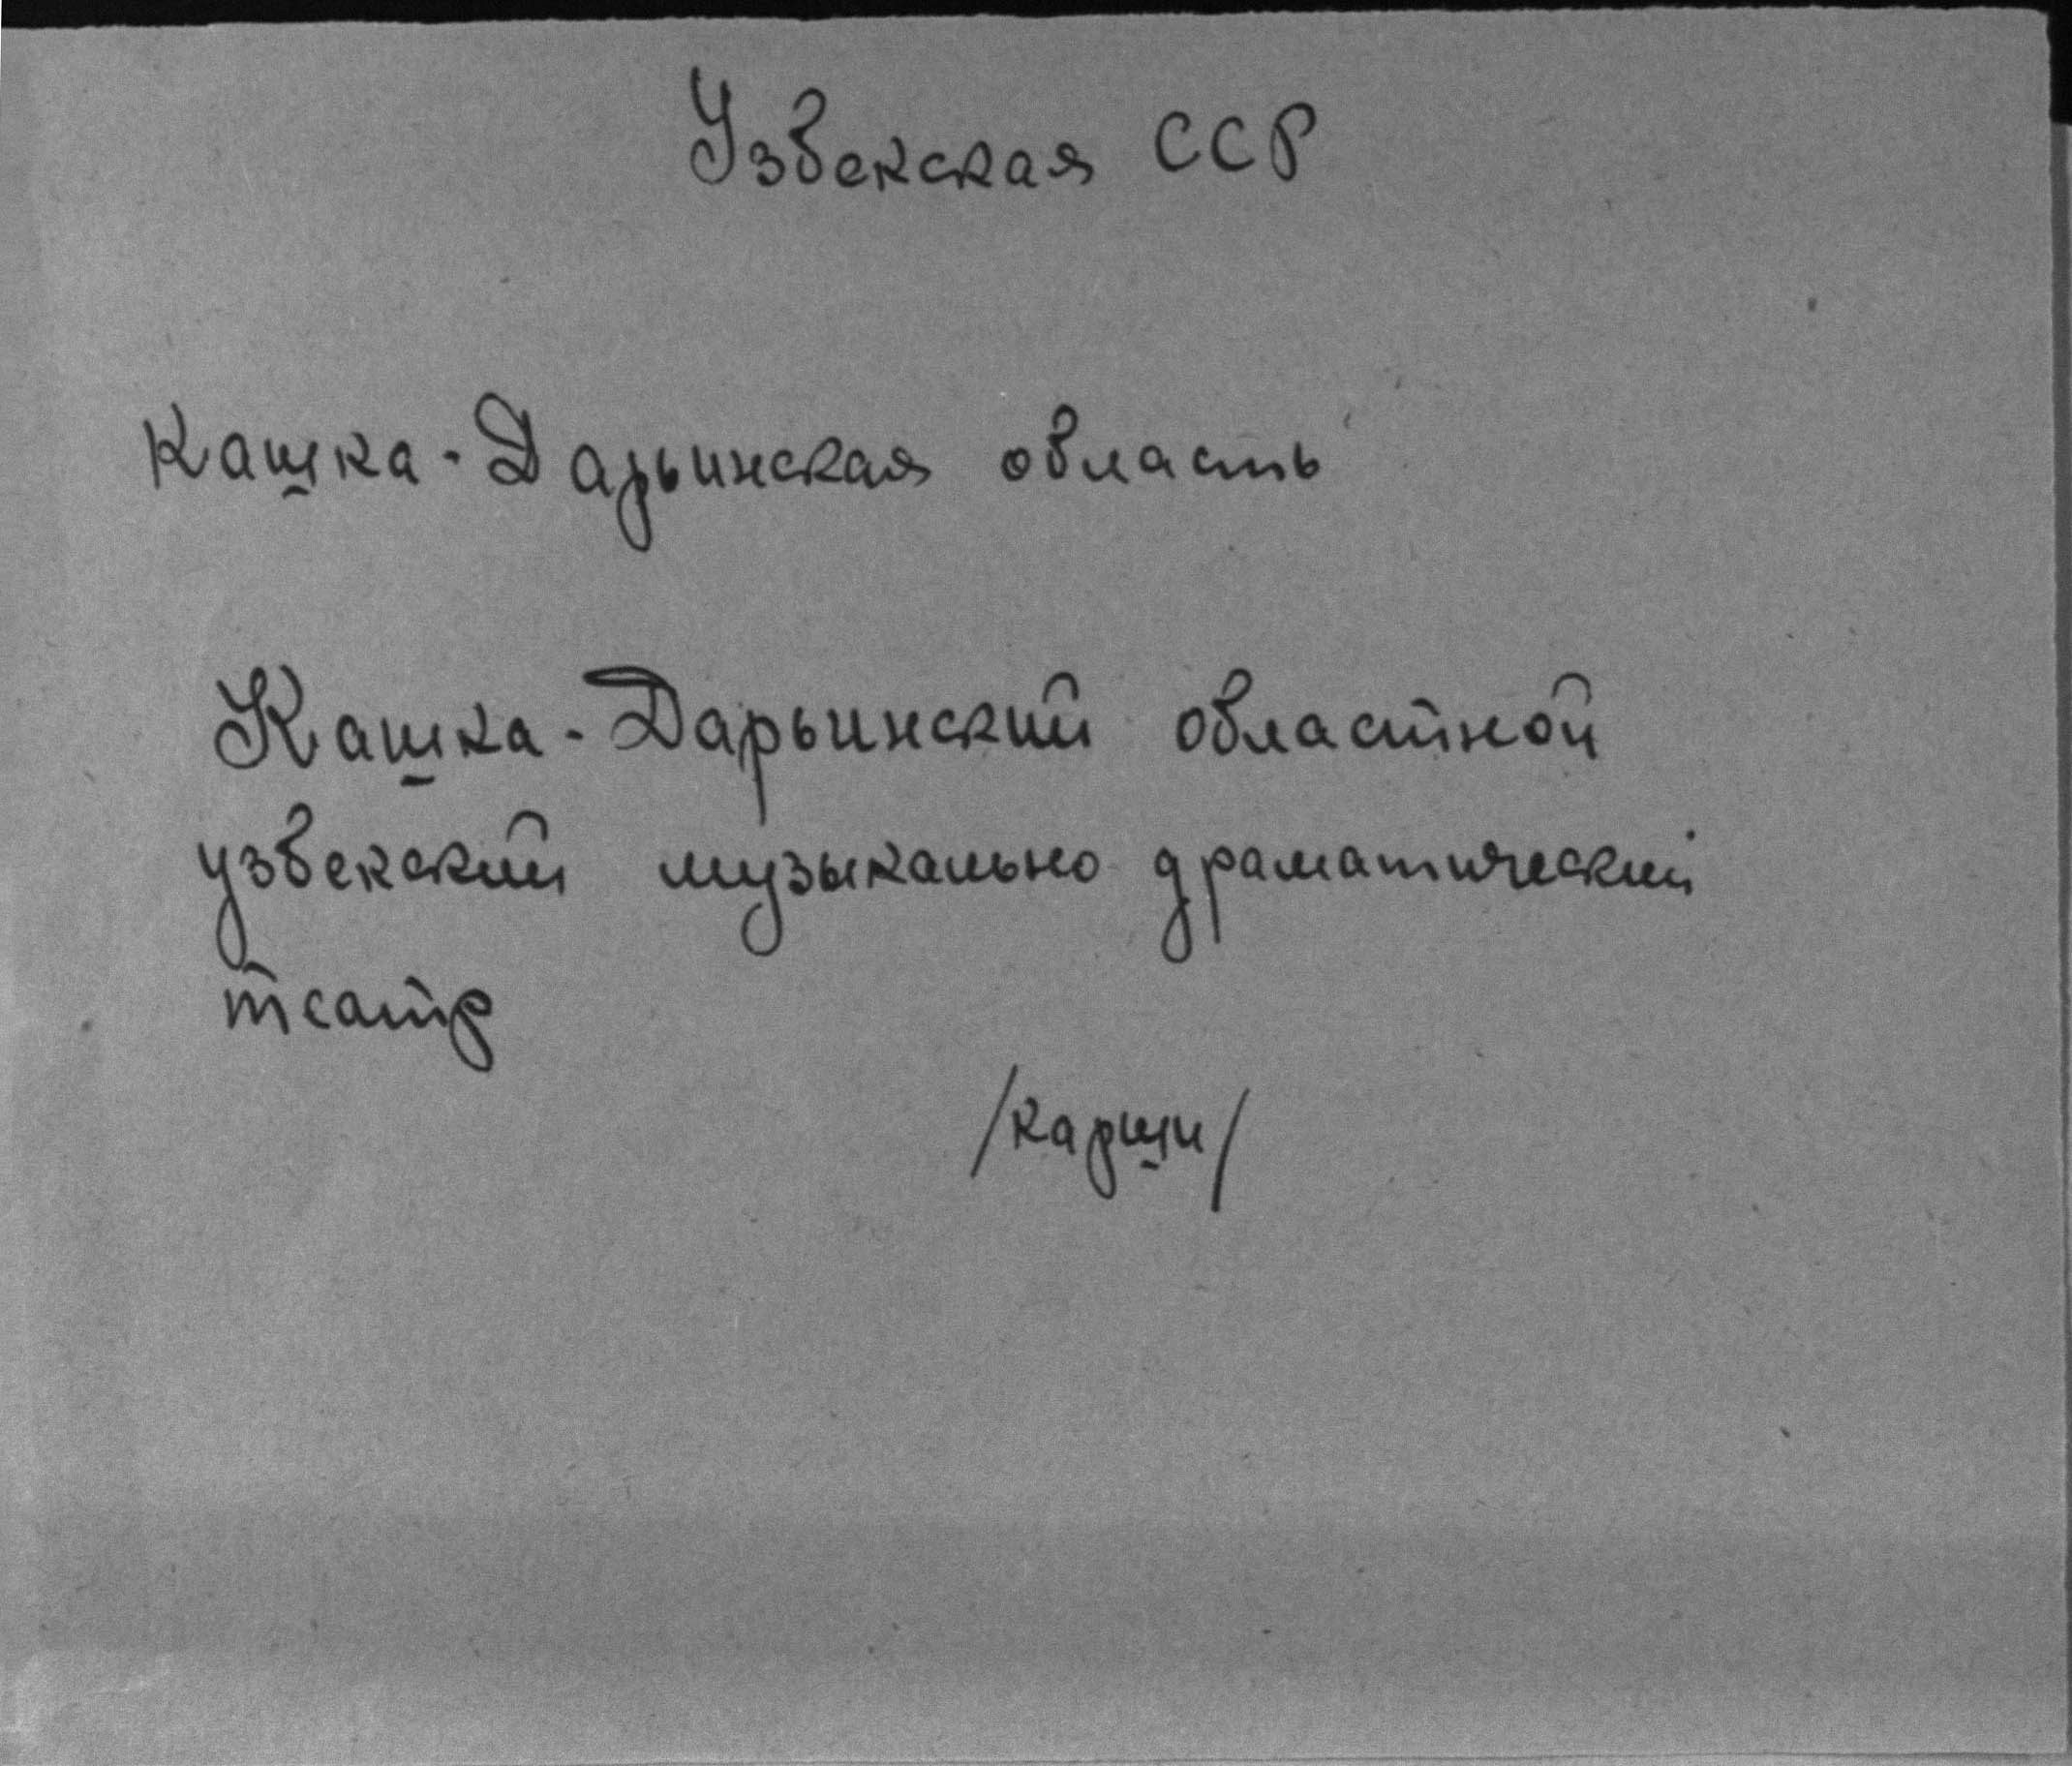 Узбекская ССР
Кашка-Дарьинская область
Кашка-Дарьинский областной
узбекский музыкально драматический
театр
/Карши/